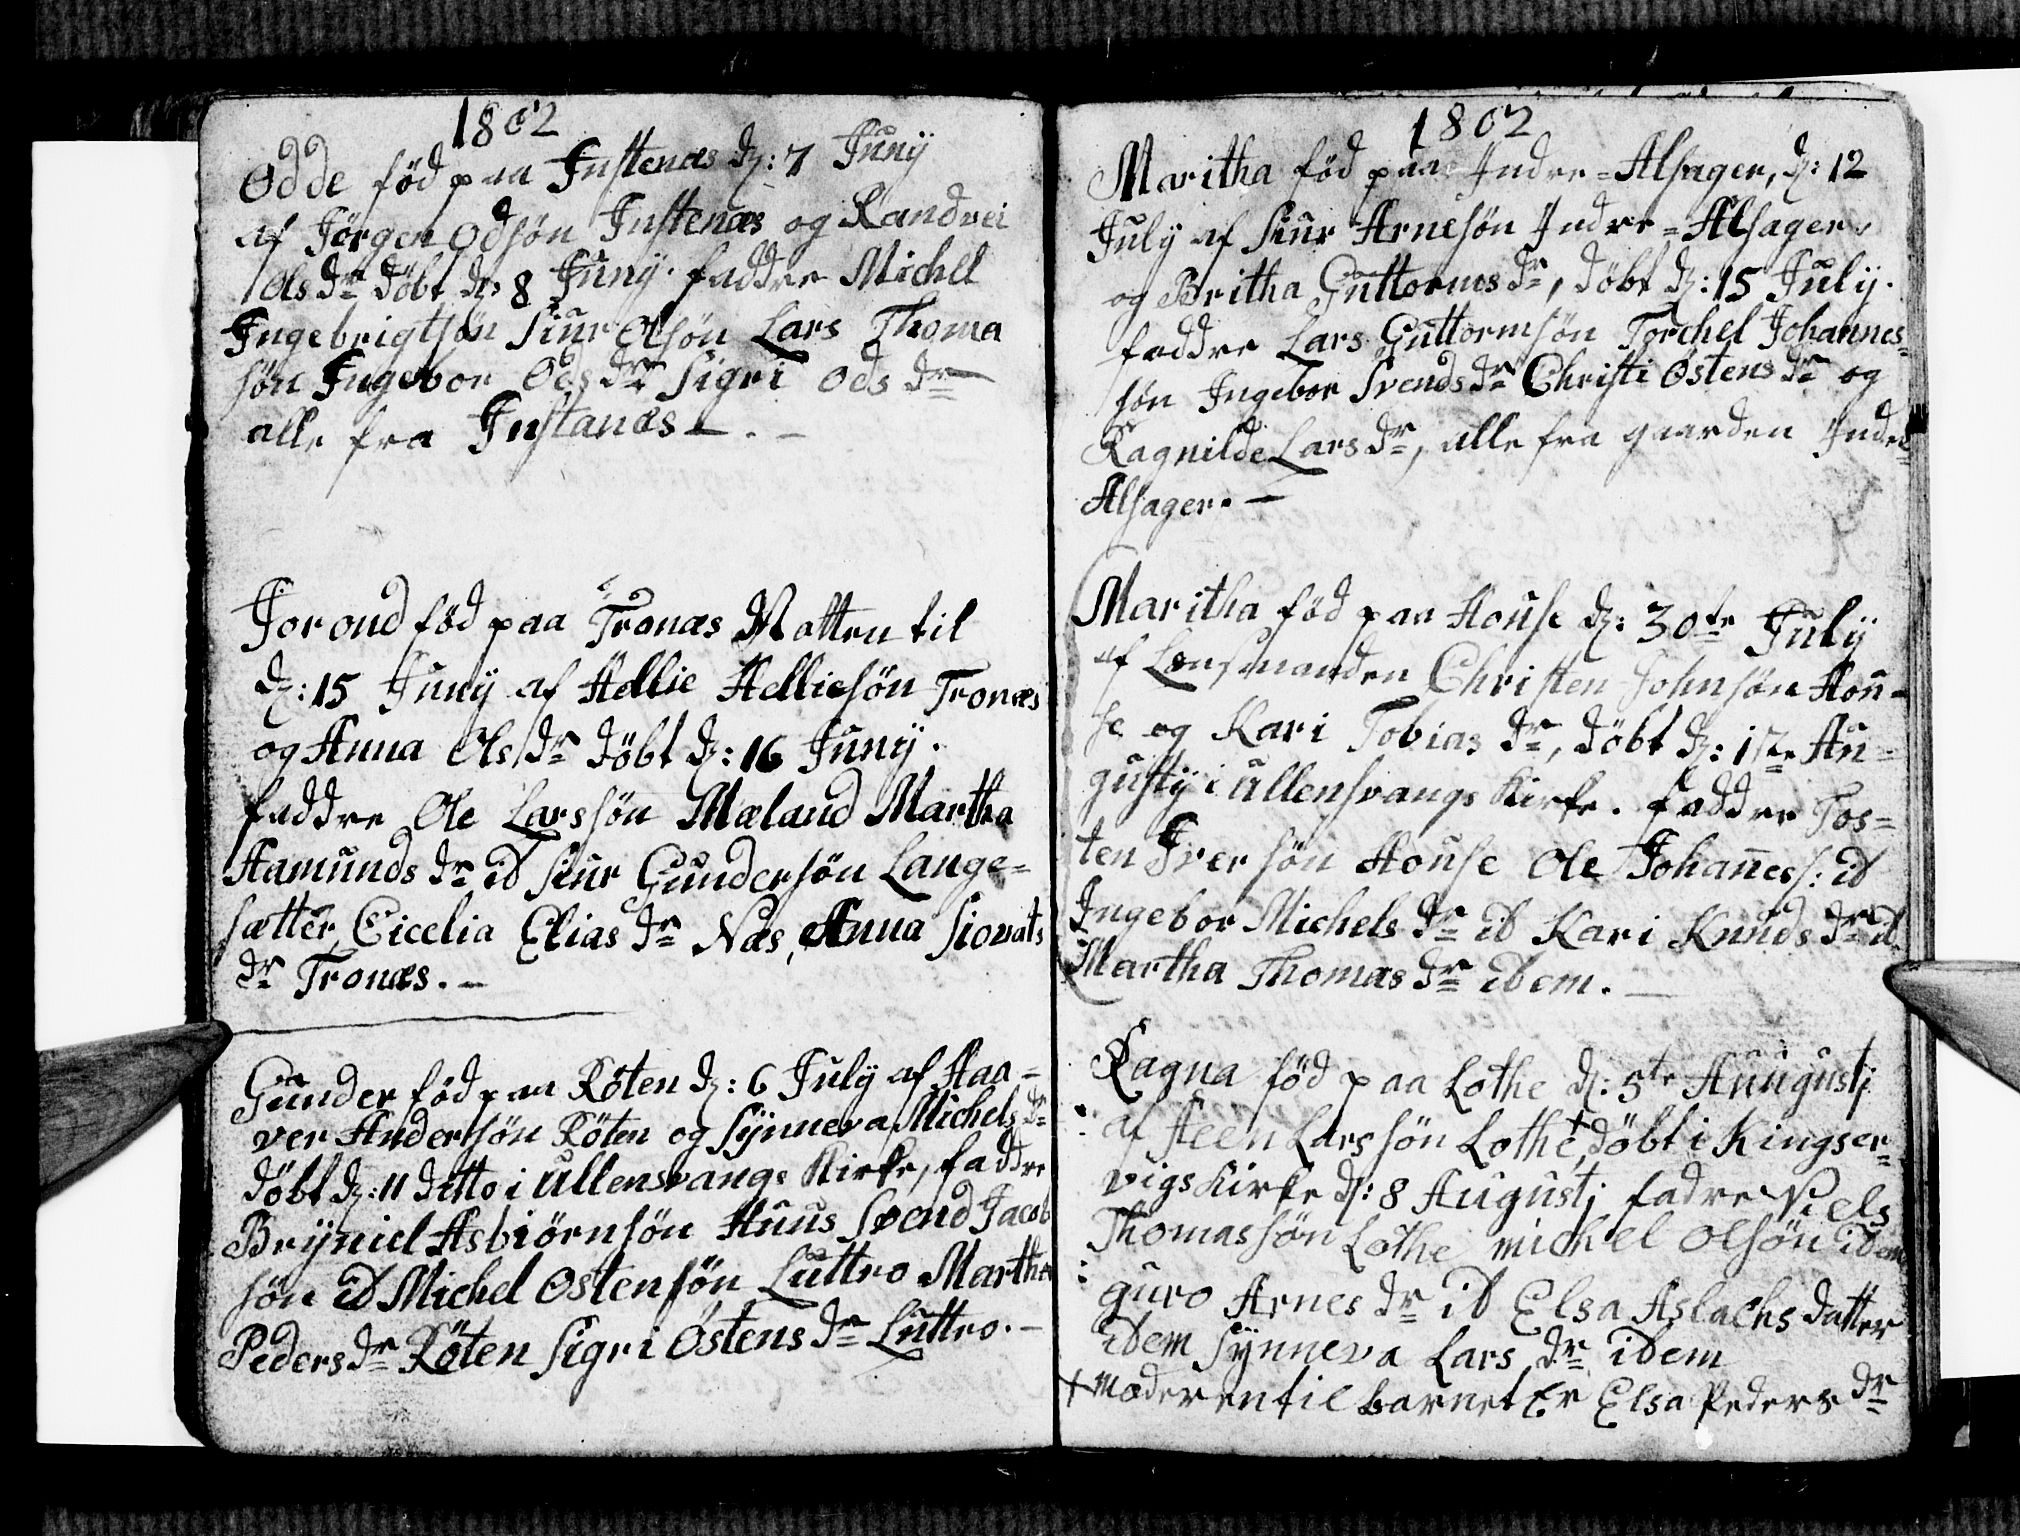 1802
Odde fód paa Instenæs dȝ: 7 Junÿ
af Jörgen Odsön Instenæs og Randvei
Ols dr döbt dȝ: 8 Junÿ. faddre Michel
Ingebrigtsön Siur Olsön Lars Thoma
sön Ingebor Ods dr Sigri Ods dr
alle fra Instanæs —. —
Jorond fód paa Tronæs Natten til
dȝ: 15 Junÿ af Hellie Helliesön Tronæs
og Anna Ols dr döbt dȝ: 16 Junÿ.
faddre Ole Larssön Mæland Martha
Aamunds dr id Siur Gundersön Lange=
sætter, Cicelia Elias dr Næs, Anna Siovats
dr Tronæs. —
Gunder fód paa Röten dȝ: 6 July af Haa=
ver Andersön Röten og Sÿnneva Michels dr
döbt dȝ: 11 ditto i Ullensvangs Kirke, faddre
Brÿniel Asbiörnsön Huus Svend Jacob
sön id Michel Ostensön Luttro Martha
Peders dr Röten Sigri Östens dr Luttro. —
1802
Maritha fód paa Indre=Alsager, dȝ: 12
July af Siur Arnesön Indre=Alsager,
og Britha Guttorms dr, döbt dȝ: 15 Julÿ.
faddre Lars Guttormsön Torchel Johannes=
sön Ingebor Svends dr Christi Östens dr og
Ragnilde Lars dr, alle fra gaarden Indre=
Alsager. —
Maritha fód paa House dȝ: 30te Julÿ
af Lensmanden Christen Johnsön Hou=
se og Kari Tobias dr, döbt dȝ: 1ste Au=
gustÿ i Ullensvangs Kirke. faddre Tos=
ten Iversön House Ole Johanness: id
Ingebor Michels dr id Kari Knuds dr id.
Martha Thomas dr idem. —
Ragna fód paa Lothe d: 5te Auugustj
af Steen Larssön Lothe,† döbt i Kingser=
vigs Kirke d: 8 Augustj fadre Niels
Thomassön Lothe michel Olsön idem
guro Arnes dr id Elsa Aslachs datter
idem Sÿnneva Lars dr idem
† moderen til barnet Er Elsa Peders dr